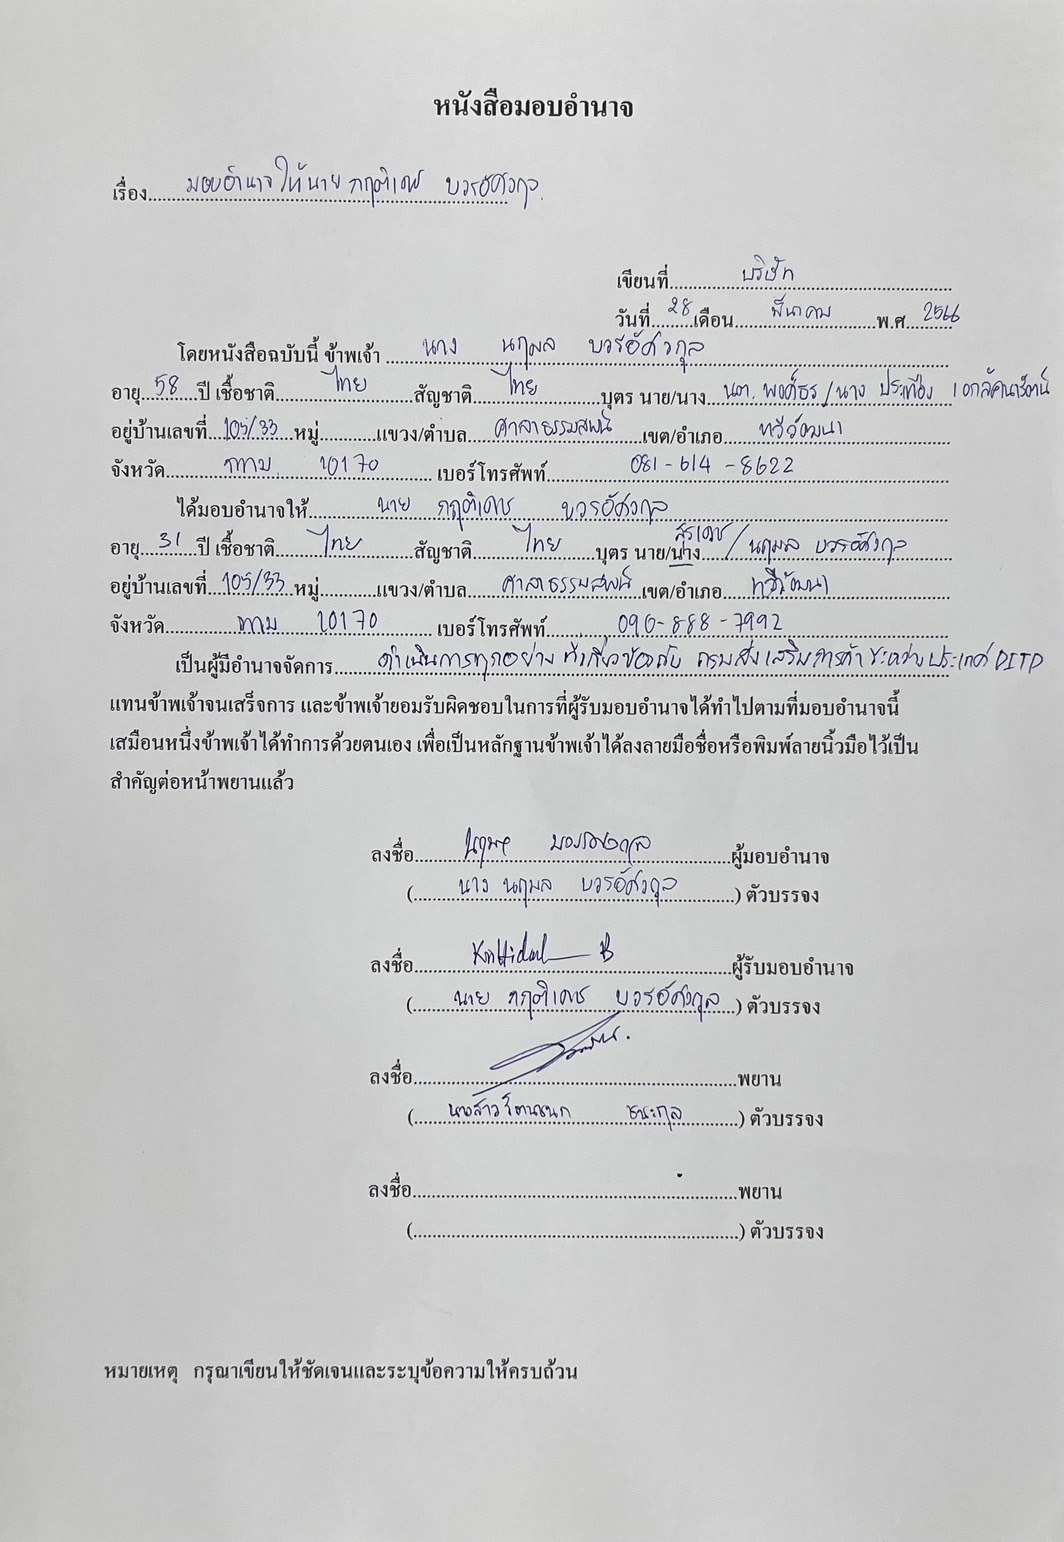 หนังสือมอบอำนาจ
เรื่อง มอบอำนาจให้นาย กฤติเดช บวรอัศวกุล
เขียนที่ บริษัท
วันที่ 28 เดือน มีนาคม พ.ศ. 2566
โดยหนังสือฉบับนี้ ข้าพเจ้า นาง นฤมล บวรอัศวกุล
อายุ 58 ปี เชื้อชาติ ไทย สัญชาติ ไทย บุตร นาย/นาง พงศ์ธร / นาง ประเทือง
อยู่บ้านเลขที่ 105/33 หมู่ แขวง/ตำบล ศาลาธรรมสพน์ เขต/อำเภอ ทวีวัฒนา
จังหวัด กทม. 10170 เบอร์โทรศัพท์ 081-614-8622
ได้มอบอำนาจให้ นาย กฤติเดช บวรอัศวกุล
อายุ 31 ปี เชื้อชาติ ไทย สัญชาติ ไทย บุตร นาย/นาง สุรเดช / นฤมล บวรอัศวกุล
อยู่บ้านเลขที่ 105/33 หมู่ แขวง/ตำบล ศาลาธรรมสพน์ เขต/อำเภอ ทวีวัฒนา
จังหวัด กทม 10170 เบอร์โทรศัพท์ 090-888-7992
เป็นผู้มีอำนาจจัดการ ดำเนินการทุกอย่าง ที่เกี่ยวข้องกับ กรมส่งเสริมการค้าระหว่างประเทศ DITP
แทนข้าพเจ้าจนเสร็จการ และข้าพเจ้ายอมรับผิดชอบในการที่ผู้รับมอบอำนาจได้ทำไปตามที่มอบอำนาจนี้
เสมือนหนึ่งข้าพเจ้าได้ทำการด้วยตนเอง เพื่อเป็นหลักฐานข้าพเจ้าได้ลงลายมือชื่อหรือพิมพ์ลายนิ้วมือไว้เป็น
สำคัญต่อหน้าพยานแล้ว
ลงชื่อ นฤมล บวรอัศวกุล ผู้มอบอำนาจ
( นาง นฤมล บวรอัศวกุล ) ตัวบรรจง
ลงชื่อ Krittidech B ผู้รับมอบอำนาจ
( นาย กฤติเดช บวรอัศวกุล ) ตัวบรรจง
ลงชื่อ พยาน
( นางสาว ธนะกุล ) ตัวบรรจง
ลงชื่อ พยาน
( ) ตัวบรรจง
หมายเหตุ กรุณาเขียนให้ชัดเจนและระบุข้อความให้ครบถ้วน